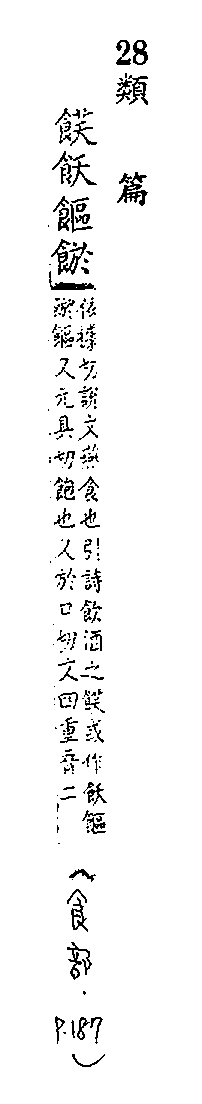 28類篇
䬩飫饇䬽
依據切說文燕食也引詩飲酒之䬩或作飫饇
䬽饇又元具切飽也又於口切文四重音二
(食部.P.187)